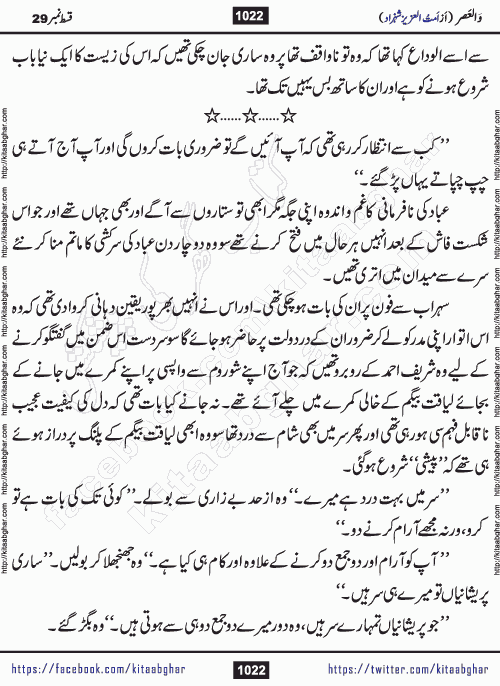 وَالعَصر (از اَمتُ العزیز شہزاد) 1022 قسط نمبر 29
سے اسے الوداع کہا تھا کہ وہ تو ناواقف تھا پر وہ ساری جان چکی تھیں کہ اس کی زیست کا ایک نیا باب
شروع ہونے کو ہے اور ان کا ساتھ بس یہیں تک تھا۔
☆......☆......☆
’’کب سے انتظار کر رہی تھی کہ آپ آئیں گے تو ضروری بات کروں گی اور آپ آج آتے ہی
چپ چپاتے یہاں پڑ گئے۔‘‘
عباد کی نافرمانی کا غم و اندوہ اپنی جگہ مگر ابھی تو ستاروں سے آگے اور بھی جہاں تھے اور جو اس
شکستِ فاش کے بعد انہیں ہر حال میں فتح کرنے تھے سو وہ دو چار دن عباد کی سرکشی کا ماتم منا کر نئے
سرے سے میدان میں اتری تھیں۔
سہراب سے فون پر ان کی بات ہو چکی تھی۔ اور اس نے انہیں بھرپور یقین دہانی کروا دی تھی کہ وہ
اس اتوار اپنی مدر کو لے کر ضرور ان کے در دولت پر حاضر ہو جائے گا سو سردست اس ضمن میں گفتگو کرنے
کے لیے وہ شریف احمد کے روبرو تھیں کہ جو آج اپنے شوروم سے واپسی پر اپنے کمرے میں جانے کے
بجائے لیاقت بیگم کے خالی کمرے میں چلے آئے تھے۔ نہ جانے کیا بات تھی کہ دل کی کیفیت عجیب
ناقابل فہم سی ہو رہی تھی اور پھر سر میں بھی شام سے درد تھا سو وہ ابھی لیاقت بیگم کے پلنگ پر دراز ہوئے
ہی تھے کہ ’’پیشی‘‘ شروع ہو گئی۔
’’سر میں بہت درد ہے میرے۔‘‘ وہ از حد بے زاری سے بولے۔ ’’کوئی تک کی بات ہے تو
کرو، ورنہ مجھے آرام کرنے دو۔‘‘
’’آپ کو آرام اور دو جمع دو کرنے کے علاوہ اور کام ہی کیا ہے۔‘‘ وہ جھنجھلا کر بولیں۔ ’’ساری
پریشانیاں تو میرے ہی سر ہیں۔‘‘
’’جو پریشانیاں تمہارے سر ہیں، وہ دور میرے دو جمع دو ہی سے ہوتی ہیں۔‘‘ وہ بگڑ گئے۔
https://facebook.com/kitaabghar 1022 https://twitter.com/kitaabghar
http://kitaabghar.com http://kitaabghar.com http://kitaabghar.com http://kitaabghar.com
http://kitaabghar.com http://kitaabghar.com http://kitaabghar.com http://kitaabghar.com